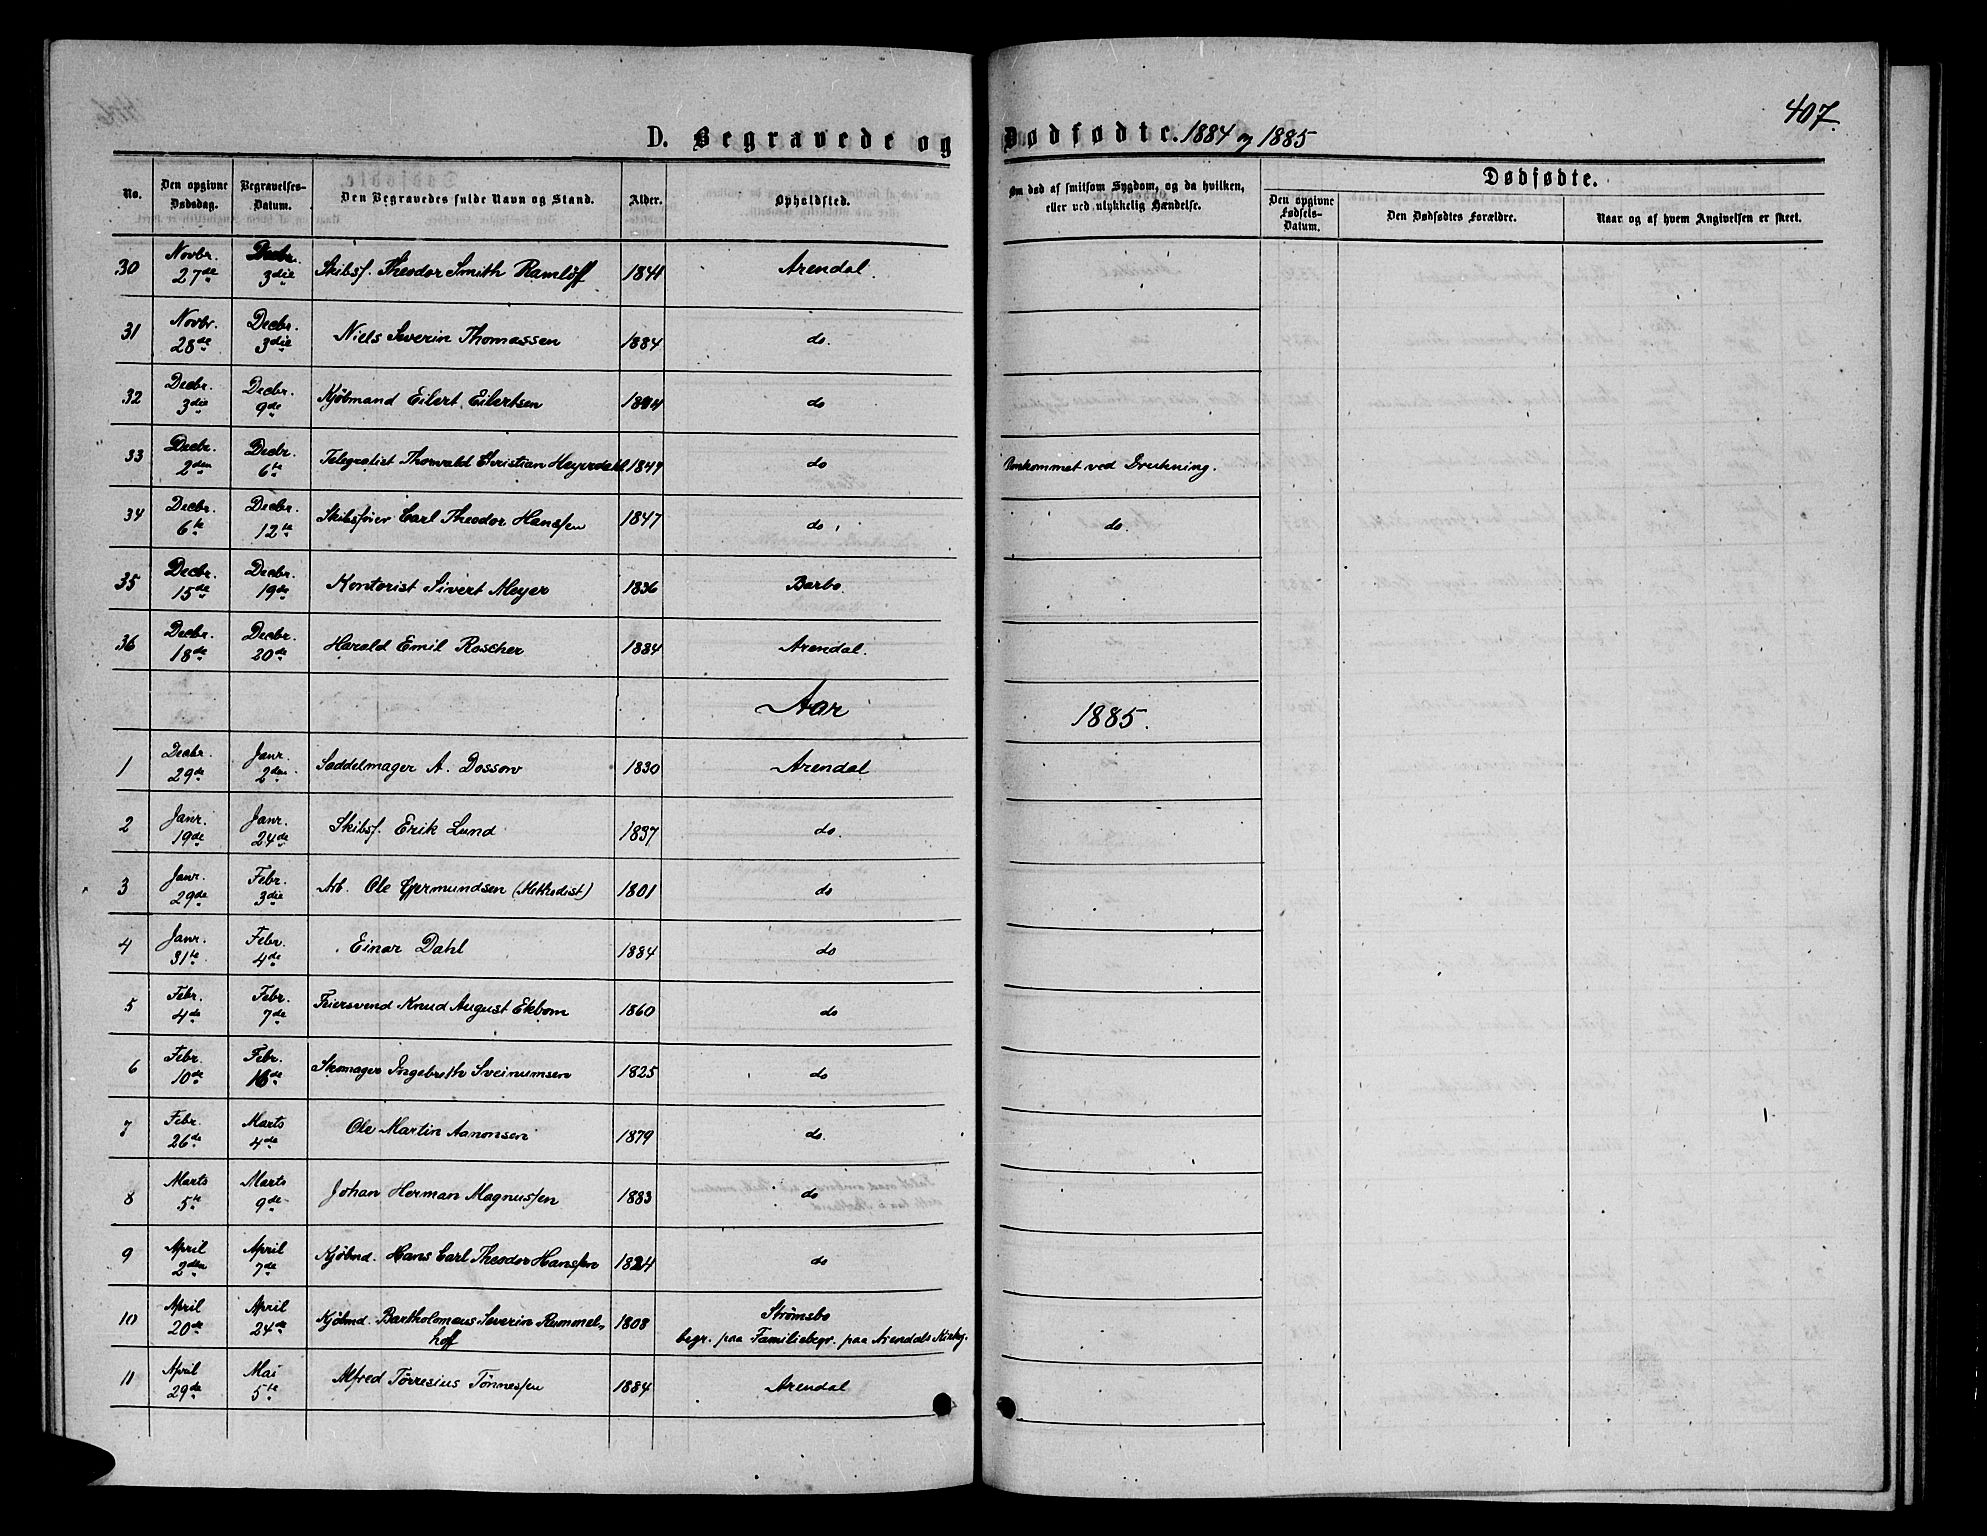 407.
D. Begravede og Dødfødte. 1884 og 1885
No.
Den opgivne Dødsdag.
Begravelses-Datum.
Den Begravedes fulde Navn og Stand.
Alder.
Opholdssted.
Om død af smitsom Sygdom, og da hvilken, eller ved ulykkelig Hændelse.
Dødfødte.
Den opgivne Fødsels-Datum.
Den Dødfødtes Forældre.
Naar og af hvem Angivelsen er skeet.
30 Novbr. 27de Decbr. 3die Skibsf. Theodor Smith Ramløff 1841 Arendal.
31 Novbr. 28de Decbr. 3die Niels Severin Thomassen 1884 do.
32 Decbr. 3die Decbr. 9de Kjøbmand Eilert Eilertsen do
33 Decbr. 2den Decbr. 6te Telegrafist Thorvald Christian Heyerdahl 1849 do Omkommet ved Drukning.
34 Decbr. 6te Decbr. 12te Skibsfører Carl Theodor Hanssen 1847 do, do.
35 Decbr. 15de Decbr. 19de Kontorist Sivert Meyer 1836 Barbo.
36 Decbr. 18de Decbr. 20de Harald Emil Roscher 1884 Arendal.
Aar 1885.
1 Decbr. 29de Janr. 2den Saddelmager A. Dossow 1830 Arendal
2 Janr. 19de Janr. 24de Skibsf. Erik Lund 1837 do.
3 Janr. 29de Febr. 3die Arb. Ole Gjermundsen (Methodist) 1801 do
4 Janr. 31te Febr. 4de Einar Dahl 1884 do
5 Febr. 4de Febr. 7de Feiersvend Knud August Ekbom 1860 do
6 Febr. 10de Febr. 16de Skomager Ingebreth Sveinumsen 1825 do
7 Febr. 26de Marts 4de Ole Martin Aanonsen 1879 do.
8 Marts 5te Marts 9de Johan Herman Magnussen 1883 do
9 April 2den April 7de Kjøbmd. Hans Carl Theodor Hanssen 1824 do
10 April 20de April 24de Kjøbmd. Bartholomæus Severin Rummel-hoff 1808 Strømsbo
begr. paa Familiebegr. paa Arendals Kirkeg.
11 April 29de Mai 5te Alfred Tørresius Tønnessen 1884 Arendal